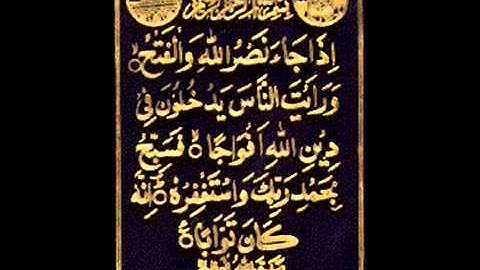 بسم الله الرحمن الرحيم
إِذَا جَاءَ نَصْرُ اللهِ وَالْفَتْحُ
وَرَأَيْتَ النَّاسَ يَدْخُلُونَ فِي
دِينِ اللهِ أَفْوَاجًا فَسَبِّحْ
بِحَمْدِ رَبِّكَ وَاسْتَغْفِرْهُ إِنَّهُ
كَانَ تَوَّابًا